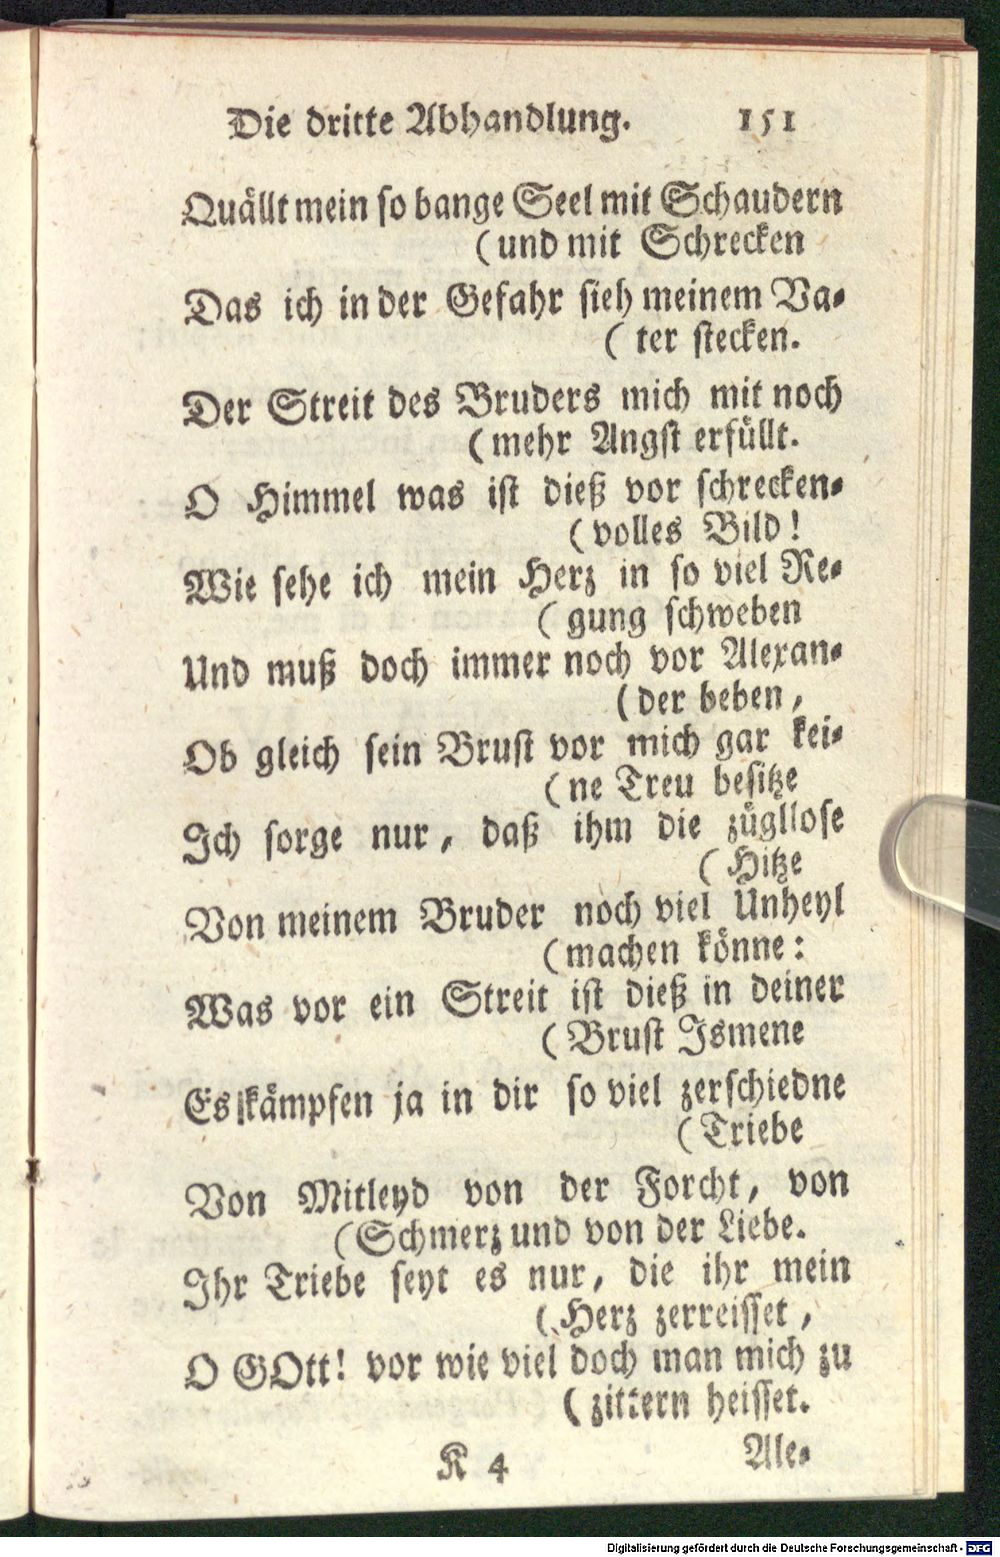 Die dritte Abhandlung. 151
Quällt mein so bange Seel mit Schaudern
(und mit Schrecken
Das ich in der Gefahr sieh meinem Va-
(ter stecken.
Der Streit des Bruders mich mit noch
(mehr Angst erfüllt.
O Himmel was ist dieß vor schrecken-
(volles Bild!
Wie sehe ich mein Herz in so viel Re-
(gung schweben
Und muß doch immer noch vor Alexan-
(der beben,
Ob gleich sein Brust vor mich gar kei-
(ne Treu besitze
Ich sorge nur, daß ihm die zügllose
(Hitze
Von meinem Bruder noch viel Unheyl
(machen könne:
Was vor ein Streit ist dieß in deiner
(Brust Ismene
Es kämpfen ja in dir so viel zerschiedne
(Triebe
Von Mitleyd von der Forcht, von
(Schmerz und von der Liebe.
Ihr Triebe seyt es nur, die ihr mein
(Herz zerreisset,
O GOtt! vor wie viel doch man mich zu
(zittern heisset.
K 4 Ale-
Digitalisierung gefördert durch die Deutsche Forschungsgemeinschaft - DFG